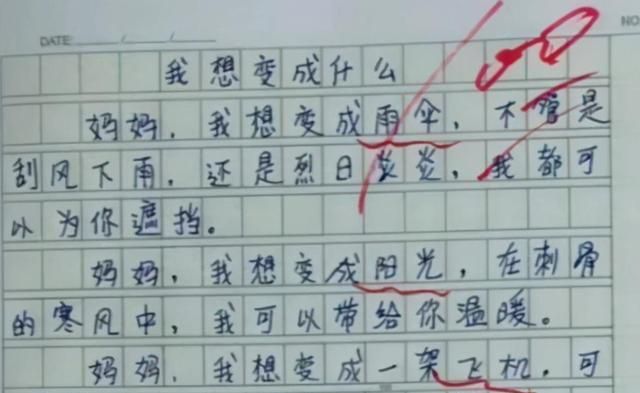 NO
DATE / /
我想变成什么
妈妈，我想变成雨伞，不管是
刮风下雨，还是烈日炎炎，我都可
以为你遮挡。
妈妈，我想变成阳光，在刺骨
的寒风中，我可以带给你温暖。
妈妈，我想变成一架飞机，可